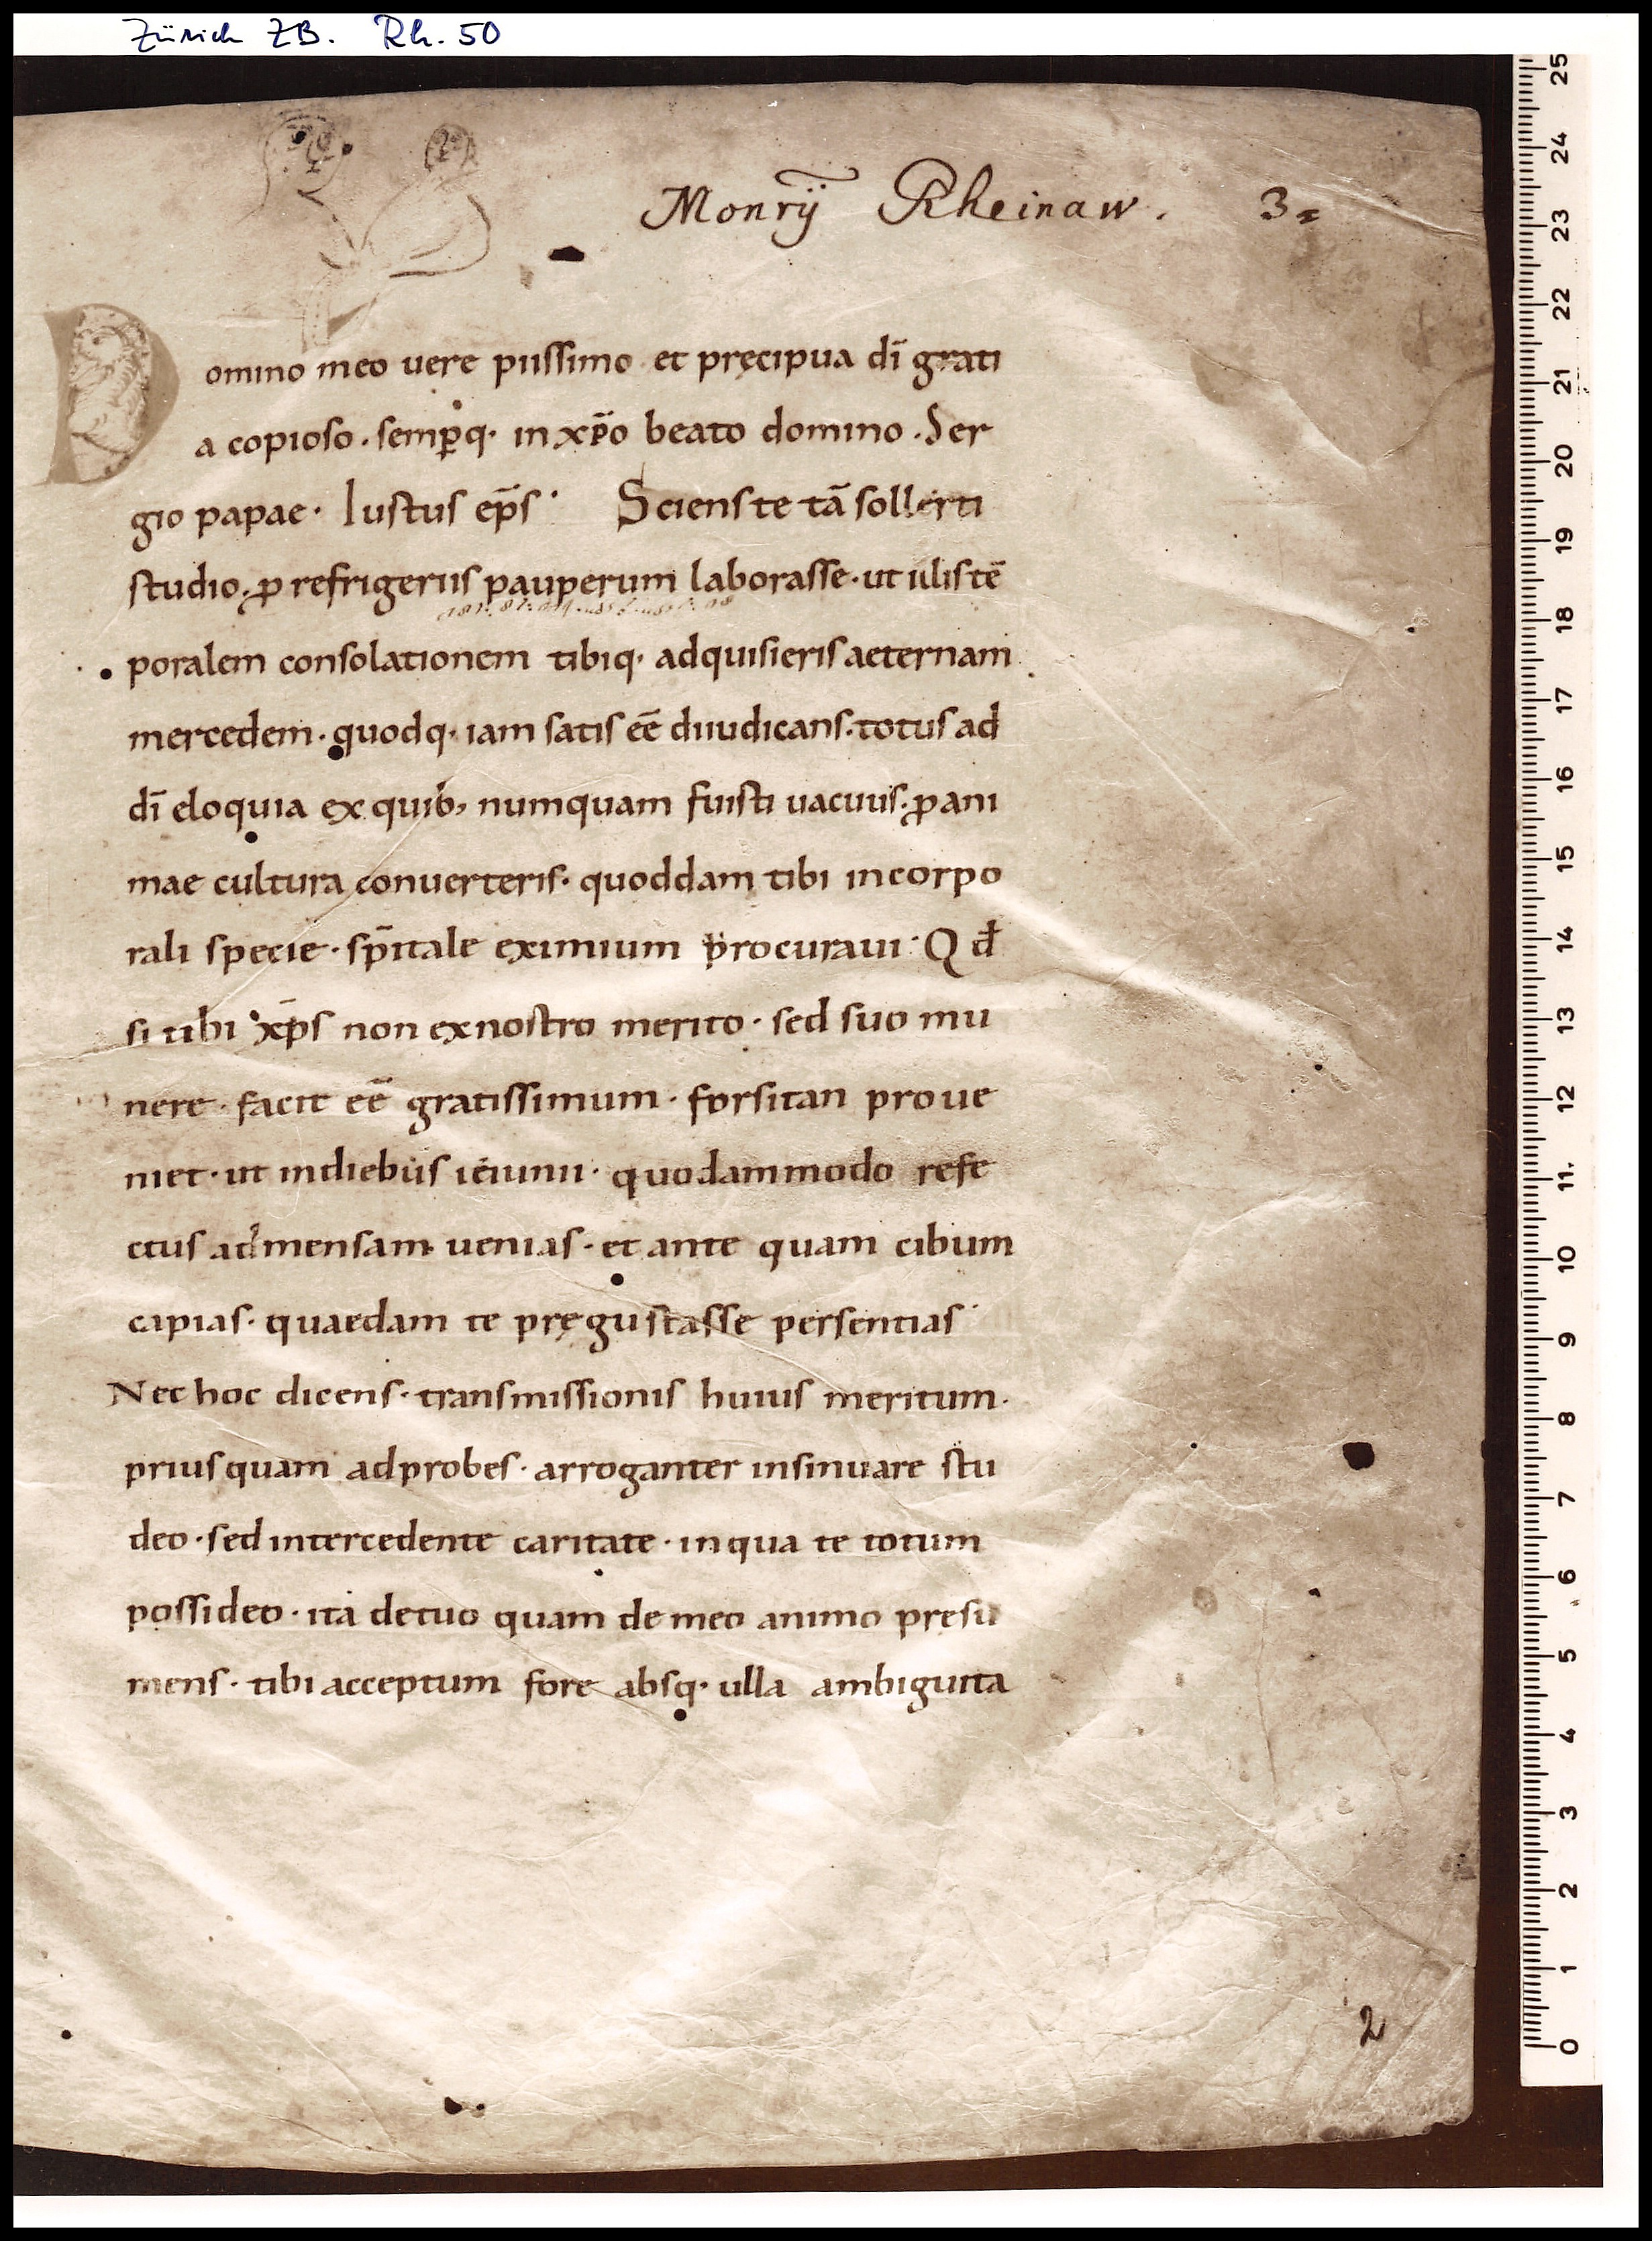 Zürich ZB. Rh. 50
Monrȳ Rheinaw. 3.
Domino meo uere piissimo et pręcipua dī grati
a copioso · semꝑq· in xp̄o beato domino · Ser
gio papae · Iustus ep̄s · Sciens te tā sollerti
studio · ꝓ refrigeriis pauperum laborasse · ut illis tē
poralem consolationem tibiq· adquisieris aeternam
mercedem · quodq· iam satis eē diiudicans · totus ad
dī eloquia ex quib; numquam fuisti uacuus · ꝓ ani
mae cultura conuerteris · quoddam tibi in corpo
rali specie · sp̄itale eximium procuraui · Qđ
si tibi xp̄s non ex nostro merito · sed suo mu
nere · facit eē gratissimum · forsitan proue
niet · ut in diebus ieiunii · quodammodo refe
ctus ad mensam uenias · et ante quam cibum
capias · quaedam te pręgustasse persentias ·
Nec hoc dicens · transmissionis huius meritum ·
prius quam adprobes · arroganter insinuare stu
deo · sed intercedente caritate · in qua te totum
possideo · ita de tuo quam de meo animo presu
mens · tibi acceptum fore absq· ulla ambiguita
2
25
24
23
22
21
20
19
18
17
16
15
14
13
12
11
10
9
8
7
6
5
4
3
2
1
0